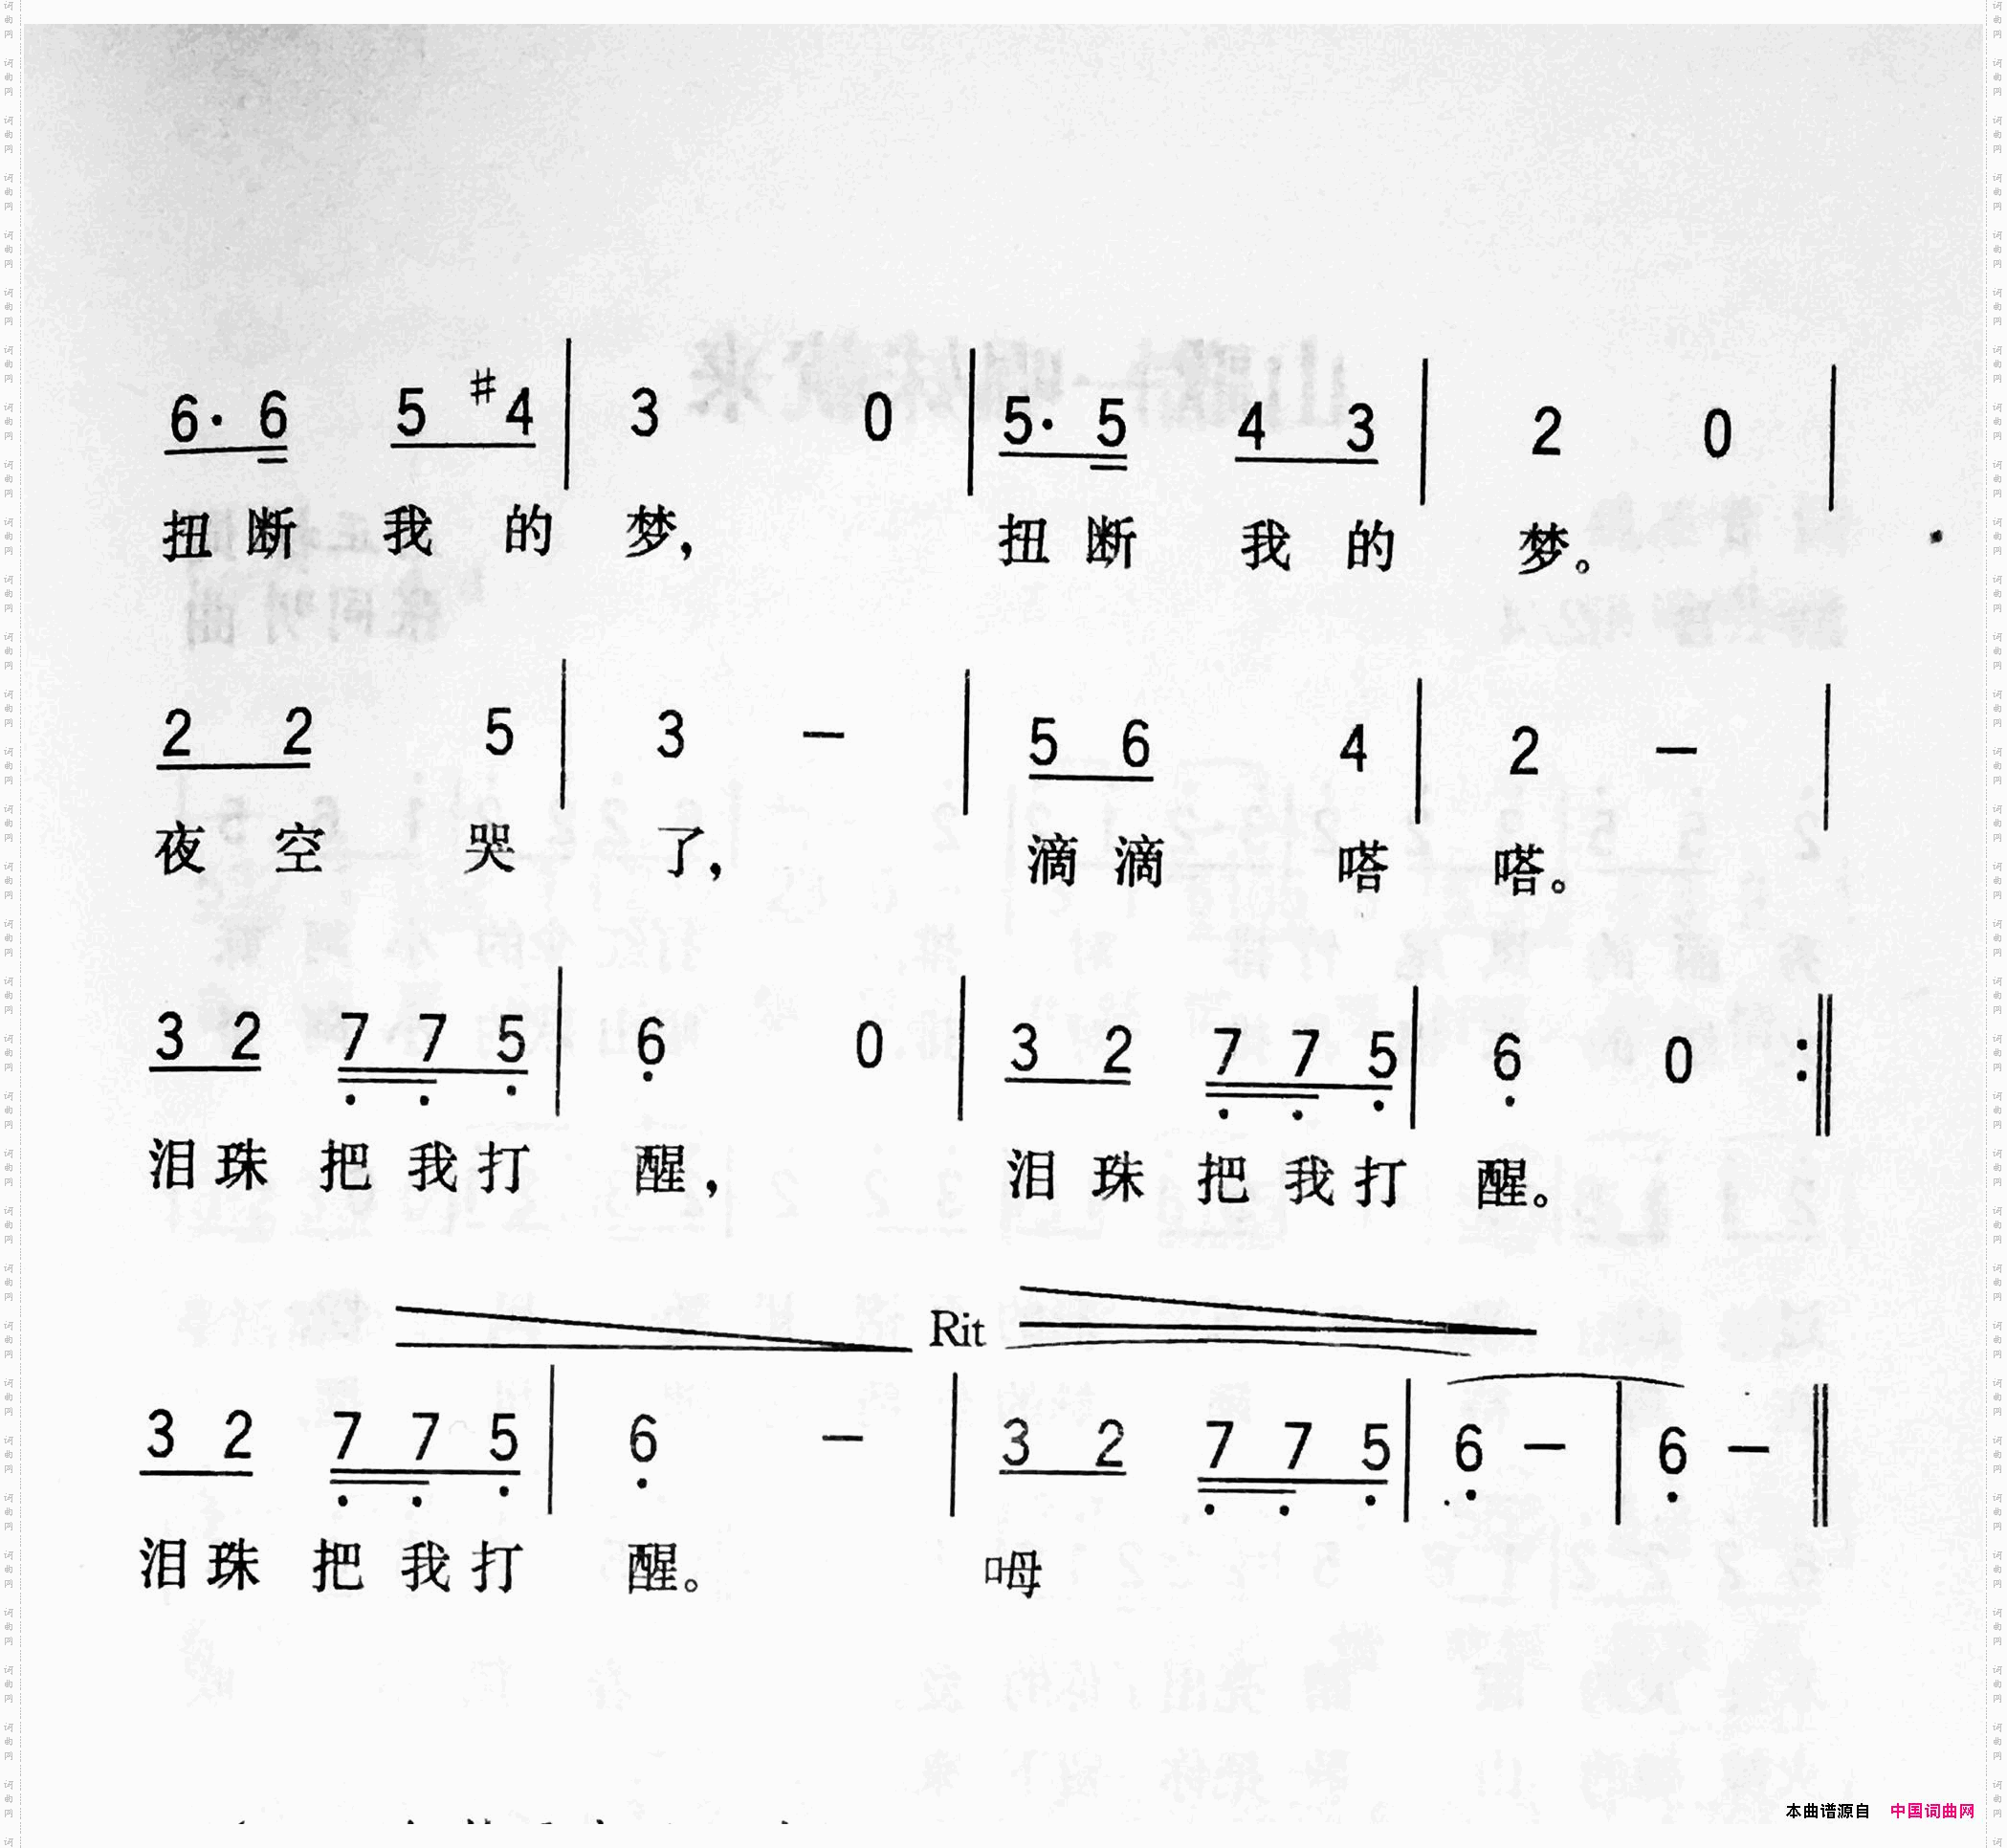 6· 6 5 #4 | 3 0 | 5· 5 4 3 | 2 0 |
扭断 我的 梦， 扭断 我的 梦。
2 2 5 | 3 － | 5 6 4 | 2 － |
夜空 哭 了， 滴滴 嗒 嗒。
3 2 7 7 5 | 6 0 | 3 2 7 7 5 | 6 0 :||
泪珠 把我打 醒， 泪珠 把我打 醒。
Rit
3 2 7 7 5 | 6 － | 3 2 7 7 5 | 6 － | 6 － ||
泪珠 把我打 醒。 呣
本曲谱源自 中国词曲网